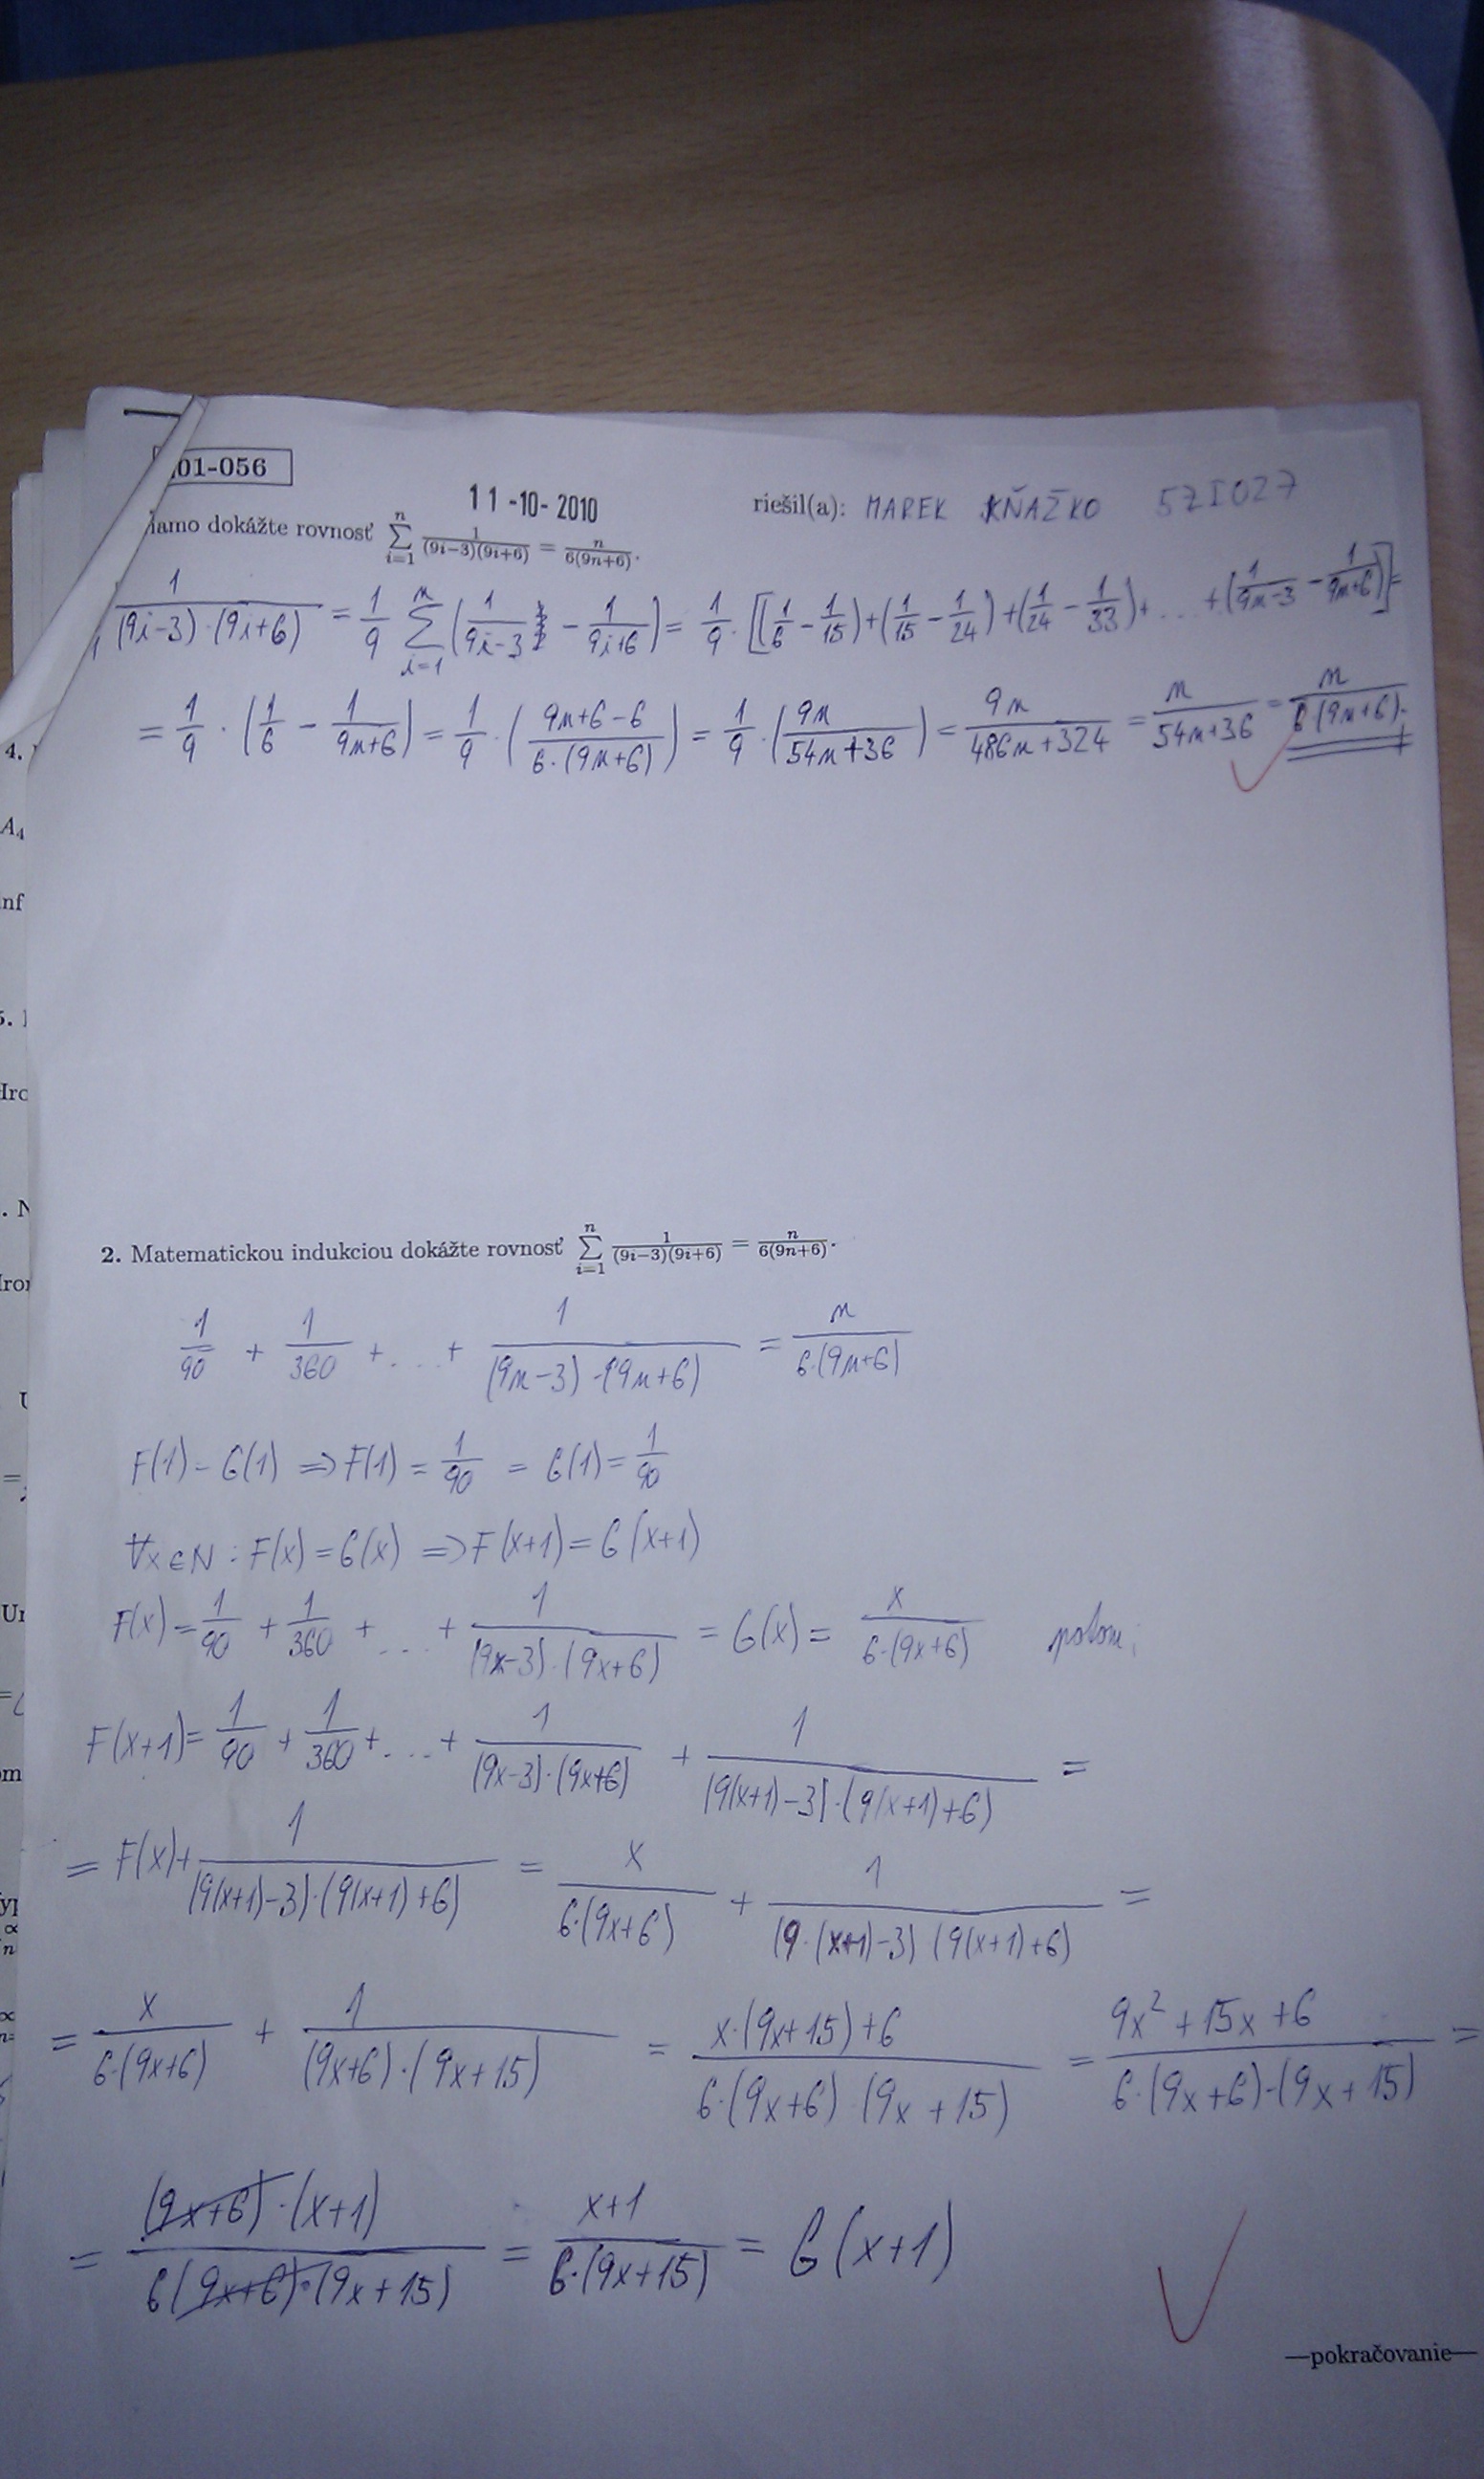 01-056
11-10-2010
riešil(a): MAREK KŇAŽKO 5ZI027
iamo dokážte rovnosť \sum_{i=1}^{n} \frac{1}{(9i-3)(9i+6)} = \frac{n}{6(9n+6)}.
\frac{1}{(9i-3)·(9i+6)} = \frac{1}{9} \sum_{i=1}^{n} (\frac{1}{9i-3} - \frac{1}{9i+6}) = \frac{1}{9}·[(\frac{1}{6} - \frac{1}{15}) + (\frac{1}{15} - \frac{1}{24}) + (\frac{1}{24} - \frac{1}{33}) + ... + (\frac{1}{9n-3} - \frac{1}{9n+6})] =
= \frac{1}{9}·(\frac{1}{6} - \frac{1}{9n+6}) = \frac{1}{9}·(\frac{9n+6-6}{6·(9n+6)}) = \frac{1}{9}·(\frac{9n}{54n+36}) = \frac{9n}{486n+324} = \frac{n}{54n+36} = \frac{n}{6·(9n+6)}.
4.
A_4
inf
5.
Iro
. N
Iro
2. Matematickou indukciou dokážte rovnosť \sum_{i=1}^{n} \frac{1}{(9i-3)(9i+6)} = \frac{n}{6(9n+6)}.
\frac{1}{90} + \frac{1}{360} + ... + \frac{1}{(9n-3)·(9n+6)} = \frac{n}{6·(9n+6)}
F(1) = G(1) ⇒ F(1) = \frac{1}{90} = G(1) = \frac{1}{90}
∀x∈N : F(x) = G(x) ⇒ F(x+1) = G(x+1)
F(x) = \frac{1}{90} + \frac{1}{360} + ... + \frac{1}{(9x-3)·(9x+6)} = G(x) = \frac{x}{6·(9x+6)} potom:
F(x+1) = \frac{1}{90} + \frac{1}{360} + ... + \frac{1}{(9x-3)·(9x+6)} + \frac{1}{(9(x+1)-3)·(9(x+1)+6)} =
= F(x) + \frac{1}{(9(x+1)-3)·(9(x+1)+6)} = \frac{x}{6·(9x+6)} + \frac{1}{(9·(x+1)-3)(9(x+1)+6)} =
= \frac{x}{6·(9x+6)} + \frac{1}{(9x+6)·(9x+15)} = \frac{x·(9x+15)+6}{6·(9x+6)·(9x+15)} = \frac{9x^2+15x+6}{6·(9x+6)·(9x+15)} =
= \frac{(9x+6)·(x+1)}{6(9x+6)·(9x+15)} = \frac{x+1}{6·(9x+15)} = G(x+1)
—pokračovanie—